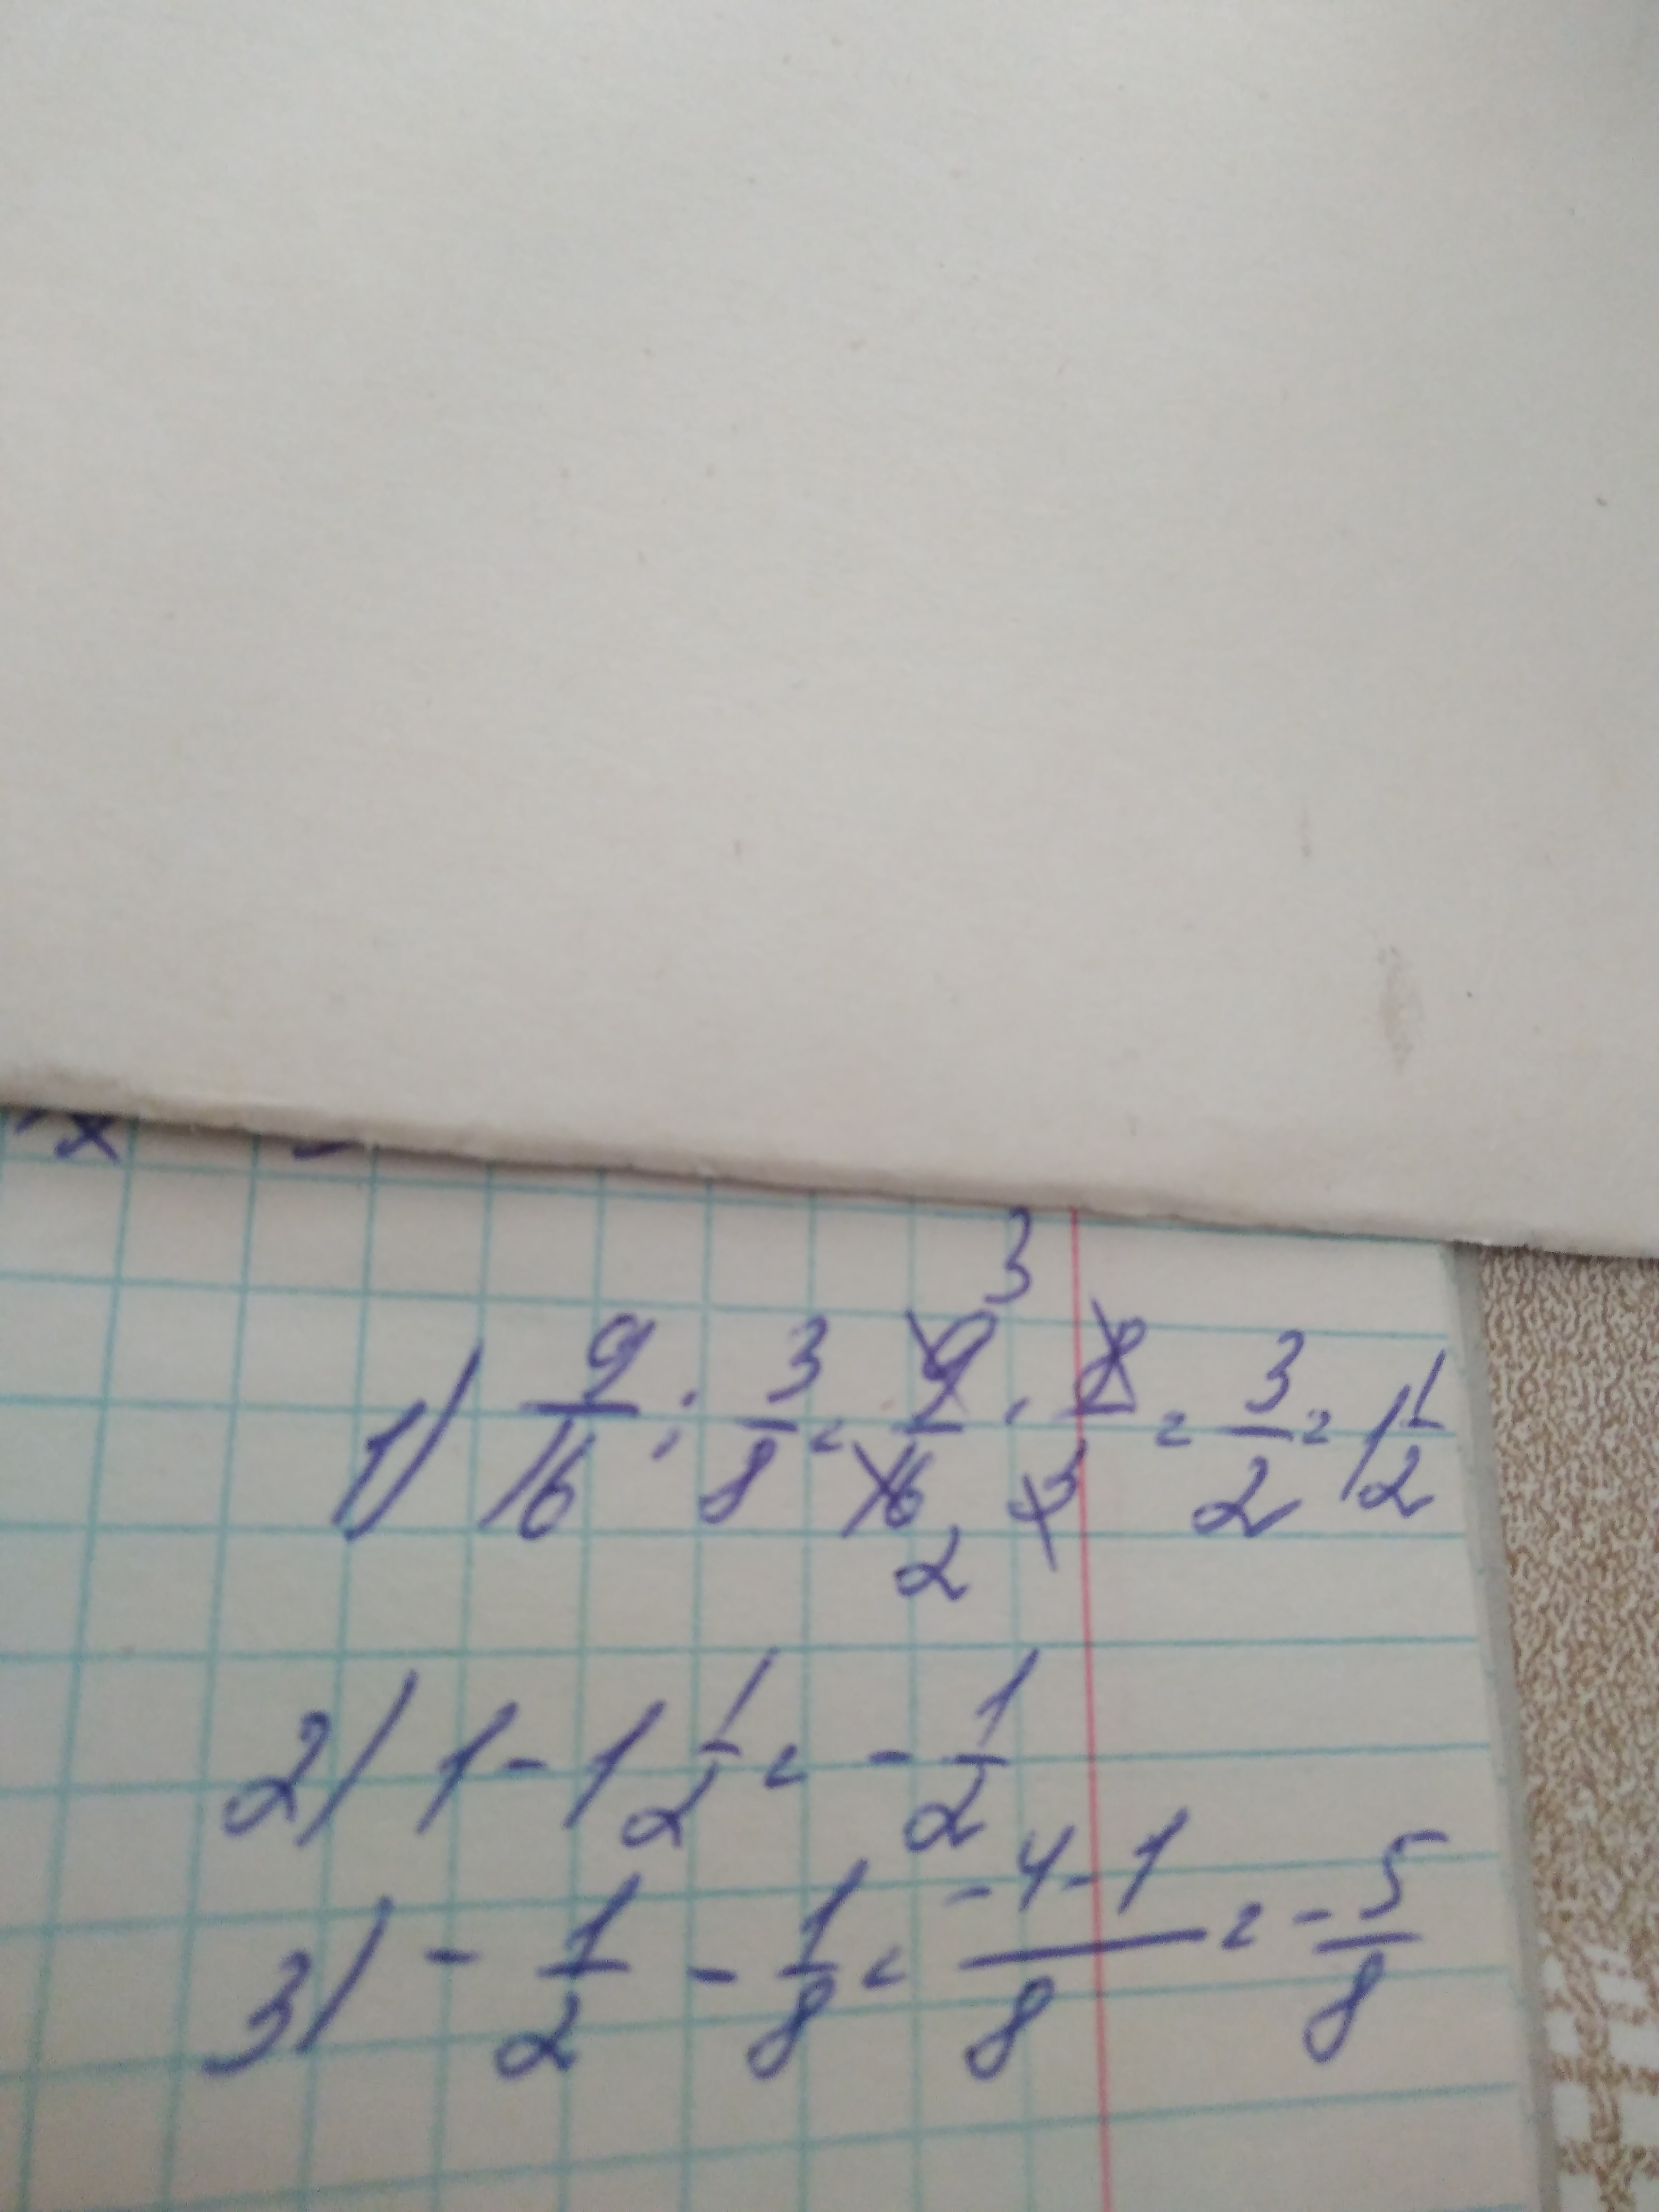 1) 9/16 : 3/8 = 9/16 · 8/3 = 3/2 = 1 1/2
3
2
2) 1 - 1 1/2 = - 1/2
3) - 1/2 - 1/8 = (-4-1)/8 = - 5/8